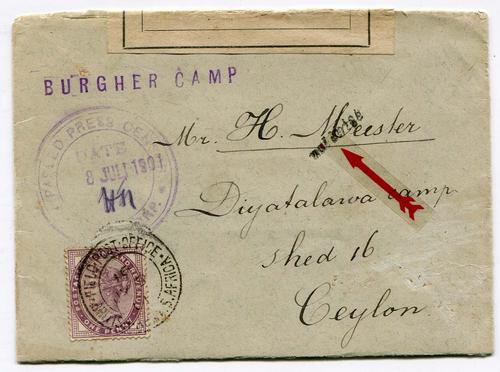 BURGHER CAMP
PASSED PRESS CENSOR
DATE
8 JULI 1901
Mr. H. Meester
Diyatalawa camp
shed 16
Ceylon.
POST OFFICE
S. AFRICA